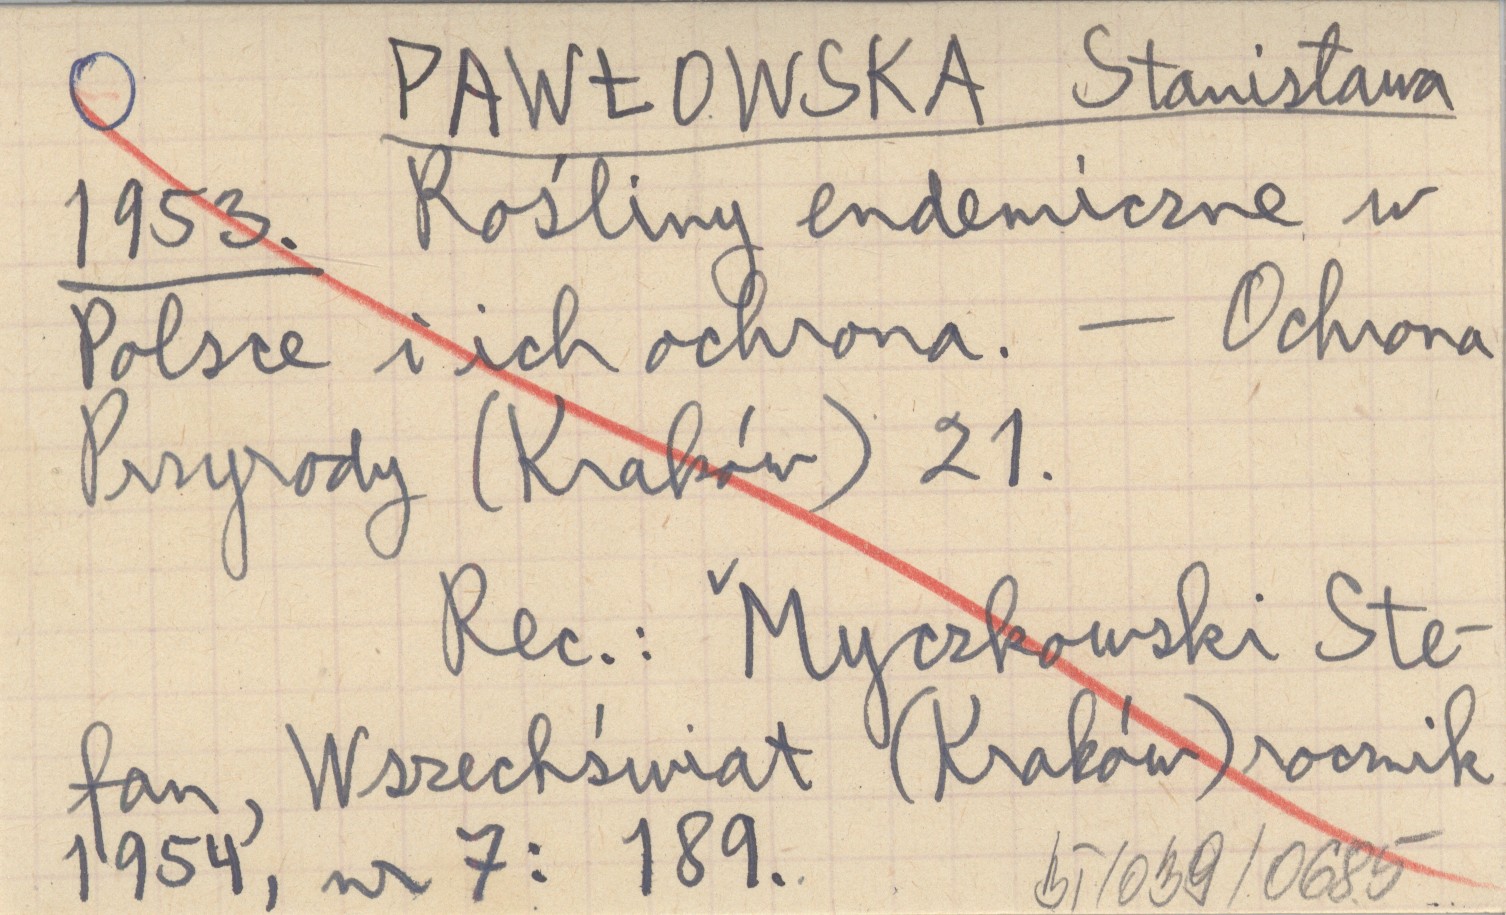 PAWŁOWSKA Stanisława
1953. Rośliny endemiczne w
Polsce i ich ochrona. — Ochrona
Przyrody (Kraków) 21.
Rec.: Myczkowski Ste-
fan, Wszechświat (Kraków) rocznik
1954, nr 7: 189.
/039/0685